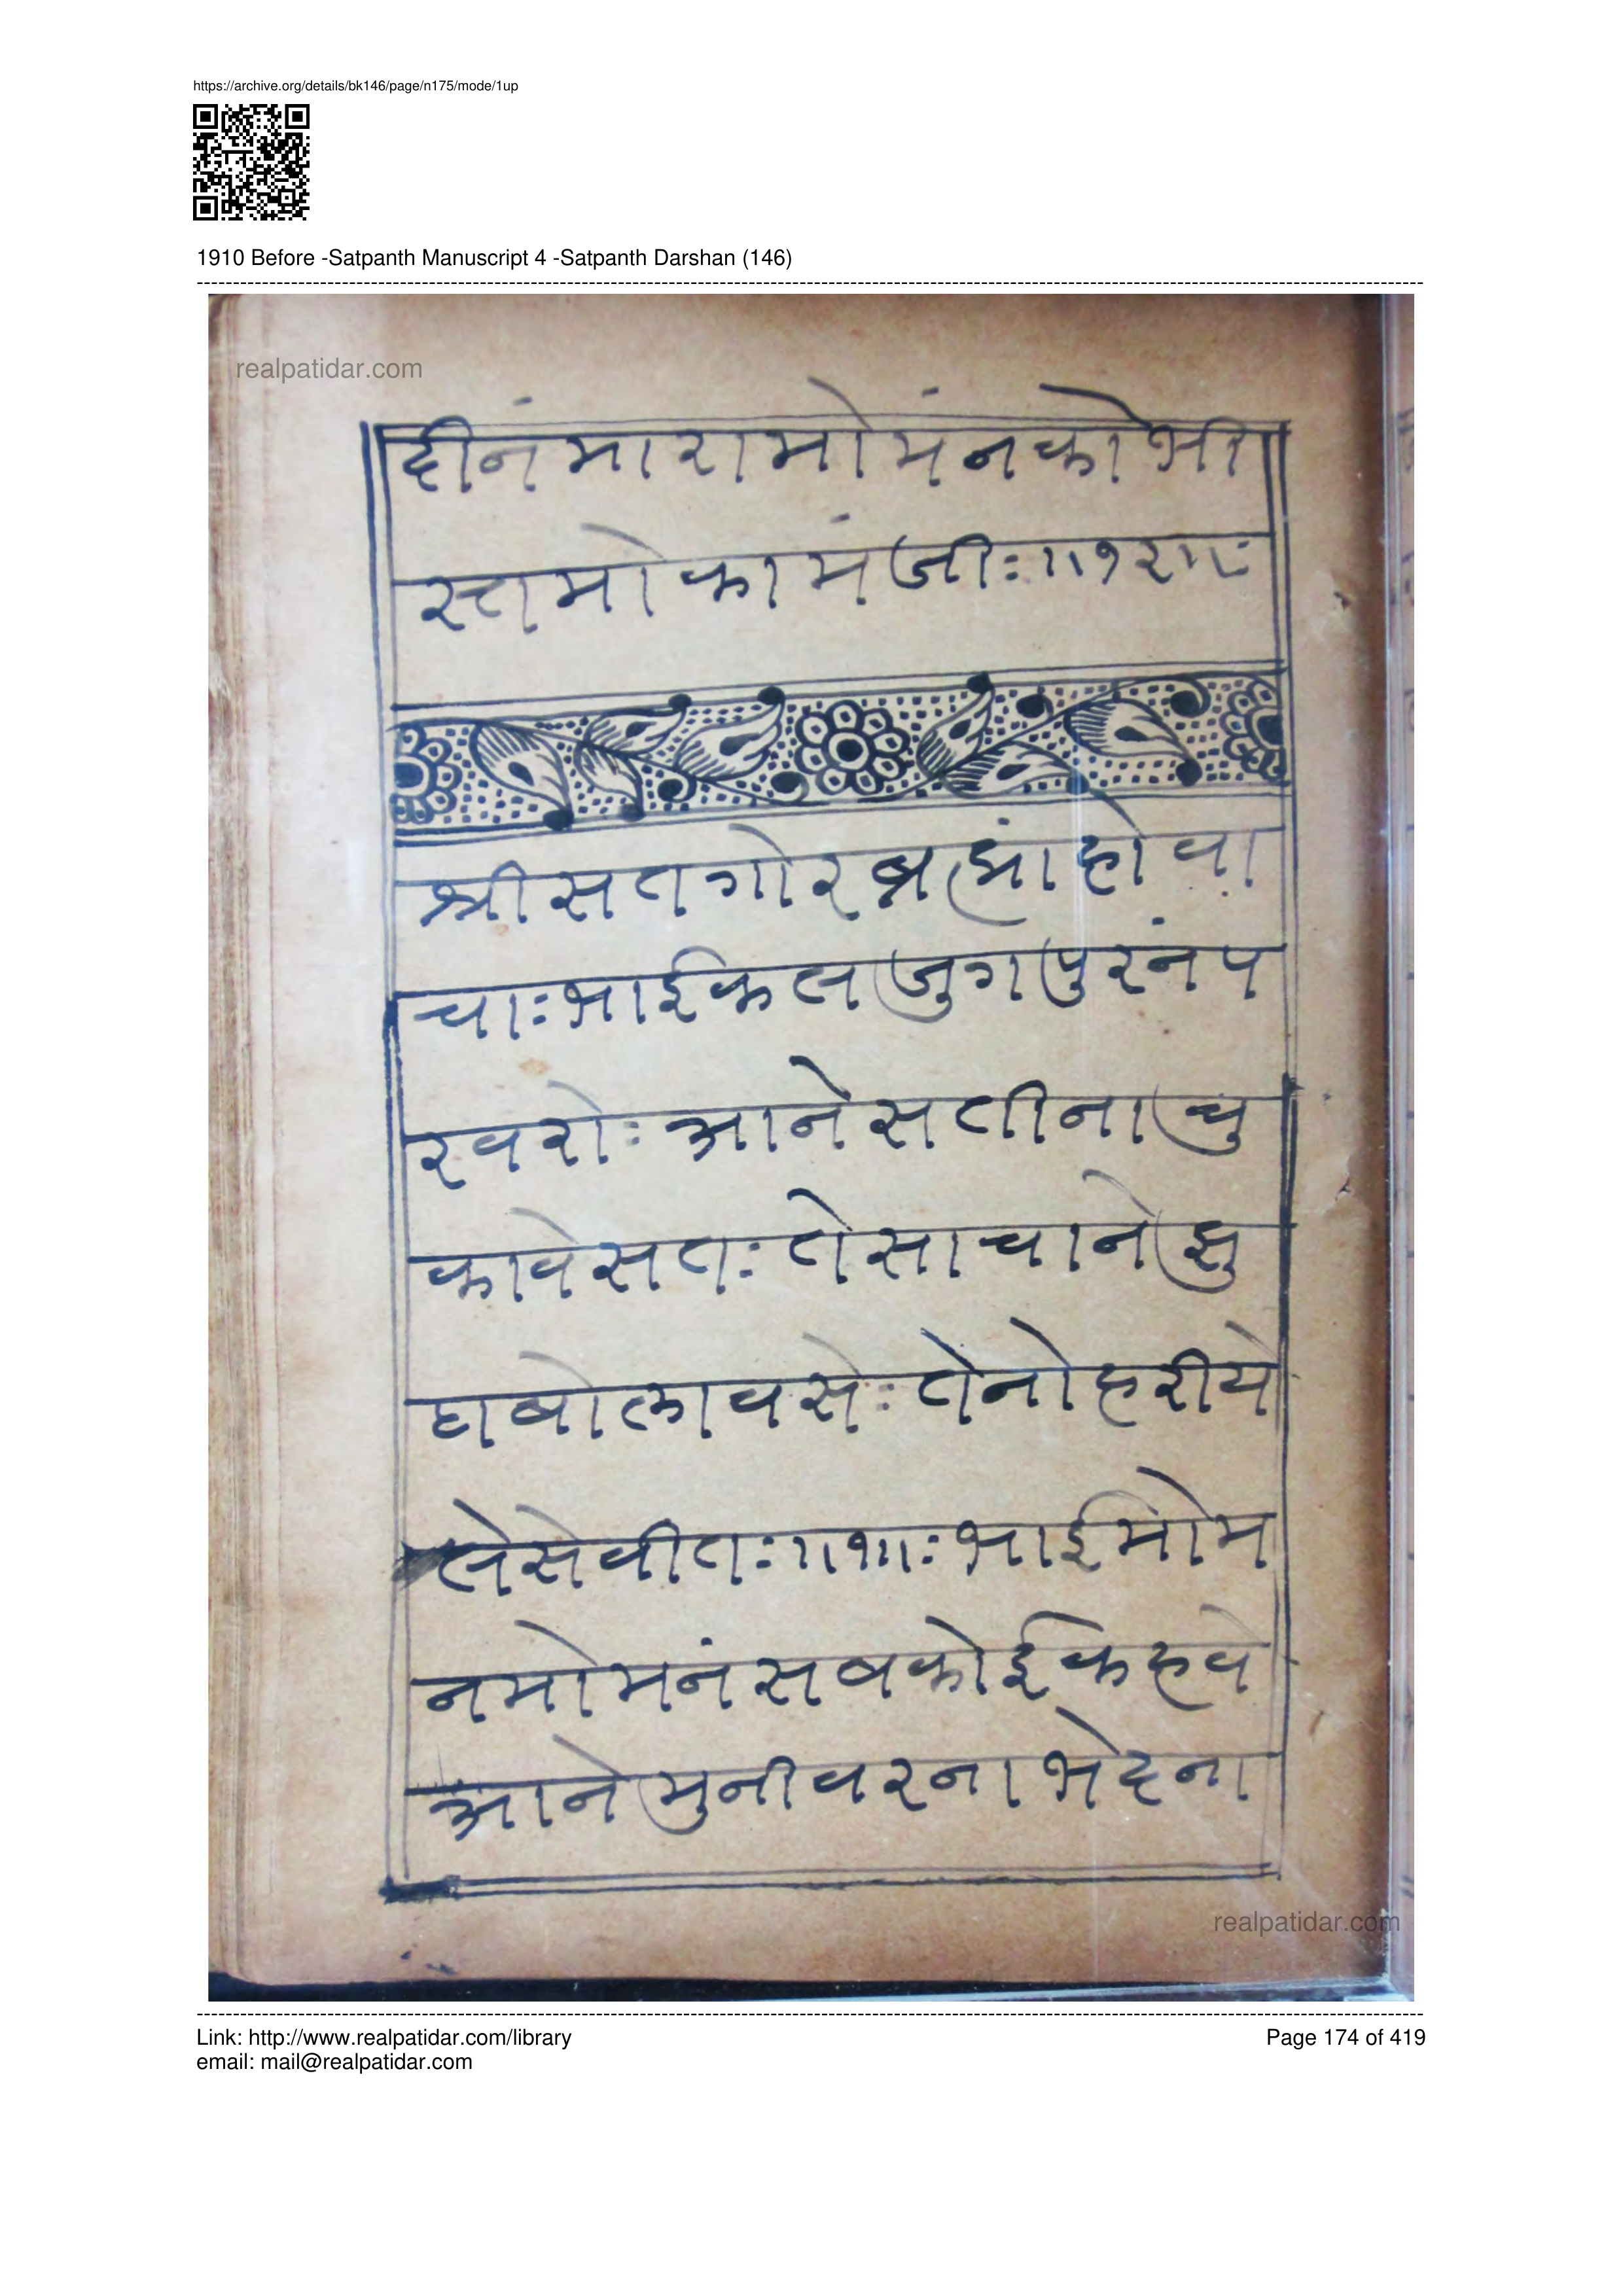 https://archive.org/details/bk146/page/n175/mode/1up
1910 Before -Satpanth Manuscript 4 -Satpanth Darshan (146)
realpatidar.com
दीनं मारा मोमंन को भी
स्त मो कामं जी: ॥१२॥:
श्री सतगोर ब्रह्मां हो वा
चा: भाई कल जुग पुरनं प
रवरो: आने सतीना चु
कावे सत: ते साचा ने झु
ठा बोलावसे: तेनो हरीये
ले सेवीत: ॥१॥: भाई मोम
न मोमनं सब कोई क हवे
आने मुनीवरना भेद ना
realpatidar.com
Link: http://www.realpatidar.com/library
email: mail@realpatidar.com
Page 174 of 419